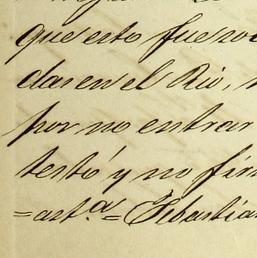 que esto fueron
das en el Rio,
por no entrar
testó y no fir
=art.a= Sebastia